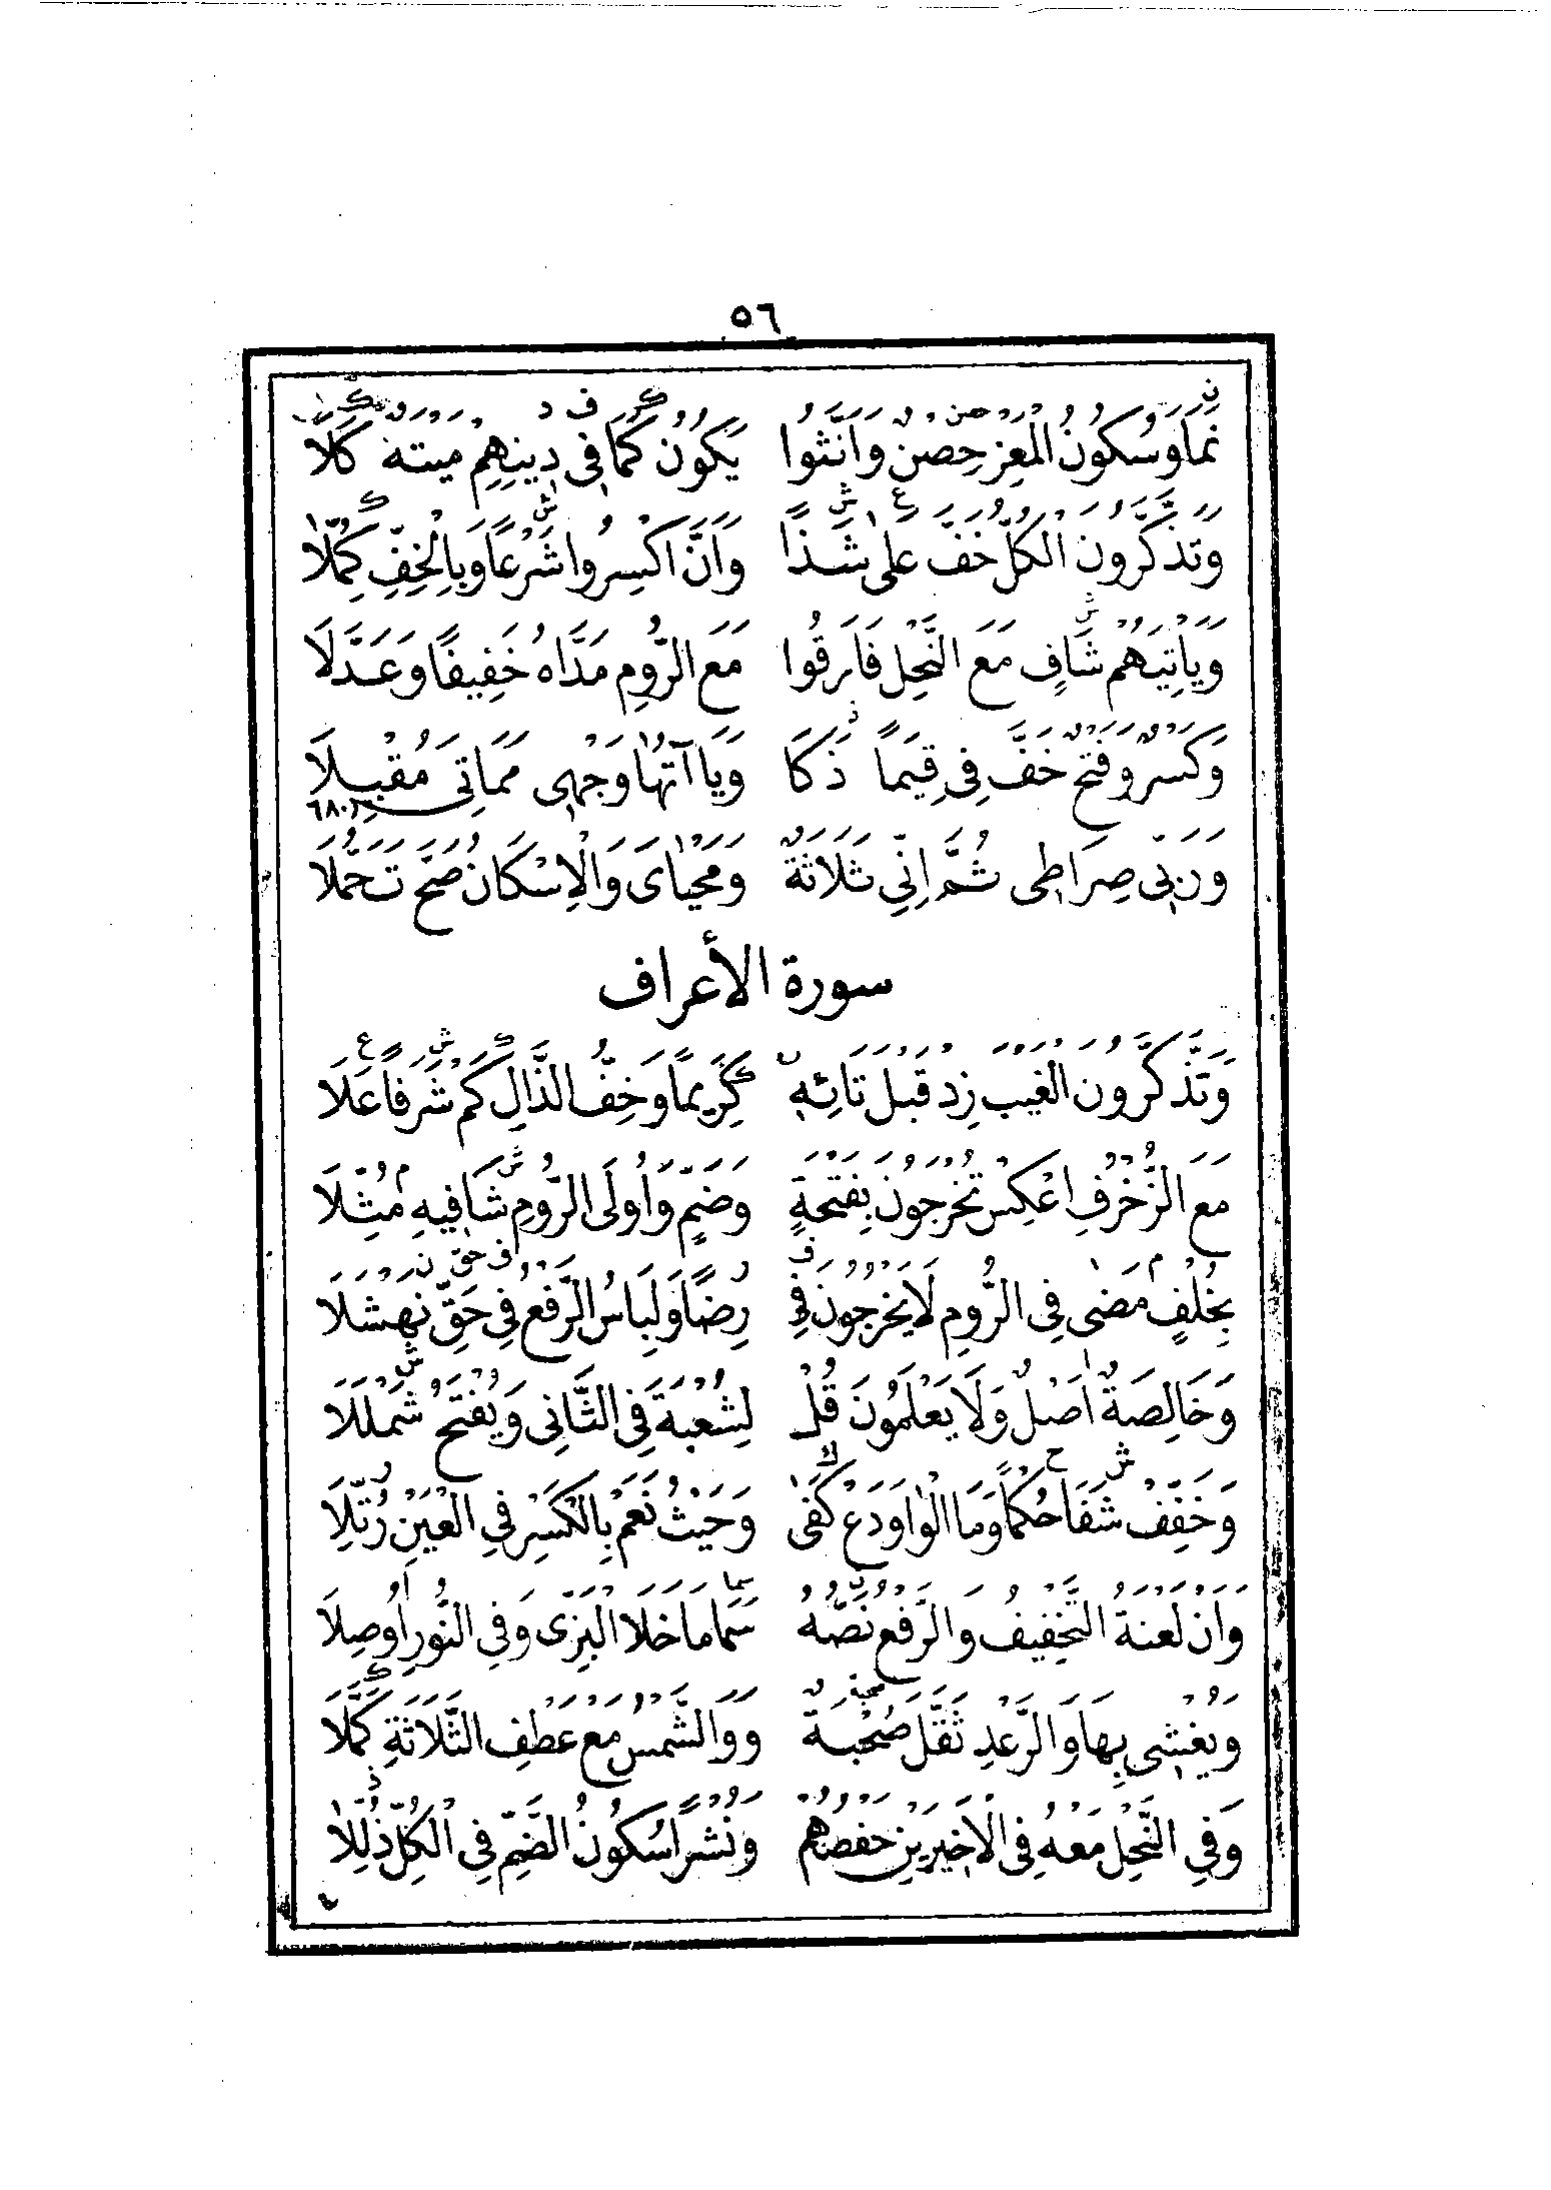 ٥٦
نَمَا وَسُكُونُ الْمَعْزِ حِصْنٌ وَأَنَّثُوا يَكُونُ كَمَا فِي دِينِهِمْ مَيْتَةٌ كَلَا
وَتَذَّكَّرُونَ الْكُلُّ خَفَّ عَلَى شَذًا وَأَنَّ اكْسِرُوا شَرْعًا وَبِالْخِفِّ كُمِّلَا
وَيَأْتِيَهُمْ شَافٍ مَعَ النَّحْلِ فَارَقُوا مَعَ الرُّومِ مَدَّاهُ خَفِيفًا وَعَدَّلَا
وَكَسْرٌ وَفَتْحٌ خَفَّ فِي قِيَمًا ذَكَا وَيَاآتُهَا وَجْهِي مَمَاتِي مُقْبِلَا
٦٨٠
وَرَبِّي صِرَاطِي ثُمَّ إِنِّي ثَلَاثَةٌ وَمَحْيَايَ وَالْإِسْكَانُ صَحَّ تَحَمُّلَا
سورة الأعراف
وَتَذَّكَّرُونَ الْغَيْبَ زِدْ قَبْلَ تَائِهِ كَرِيمًا وَخِفُّ الذَّالِ كَمْ شَرَفًا عَلَا
مَعَ الزُّخْرُفِ اعْكِسْ تُخْرَجُونَ بِفَتْحَةٍ وَضَمٍّ وَأُولَى الرُّومِ شَافِيهِ مُثِّلَا
بِخُلْفٍ مَضَى فِي الرُّومِ لَا يَخْرُجُونَ فِي رِضًا وَلِبَاسُ الرَّفْعُ فِي حَقِّ نَهْشَلَا
وَخَالِصَةٌ أَصْلٌ وَلَا يَعْلَمُونَ قُلْ لِشُعْبَةَ فِي الثَّانِي وَيُفْتَحُ شَمْلَلَا
وَخَفِّفْ شَفَا حُكْمًا وَمَا الْوَاوَ دَعْ كَفَى وَحَيْثُ نَعَمْ بِالْكَسْرِ فِي الْعَيْنِ رُتِّلَا
وَأَنْ لَعْنَةُ التَّخْفِيفُ وَالرَّفْعُ نَصُّهُ سَمَا مَا خَلَا الْبَزِّي وَفِي النُّورِ أُوصِلَا
وَيُغْشِي بِهَا وَالرَّعْدِ ثَقَّلَ صُحْبَةٌ وَوَالشَّمْسُ مَعْ عَطْفِ الثَّلَاثَةِ كَمَّلَا
وَفِي النَّحْلِ مَعْهُ فِي الْأَخِيرَيْنِ حَفْصُهُمْ وَنُشْرًا سُكُونُ الضَّمِّ فِي الْكُلِّ ذُلِّلَا